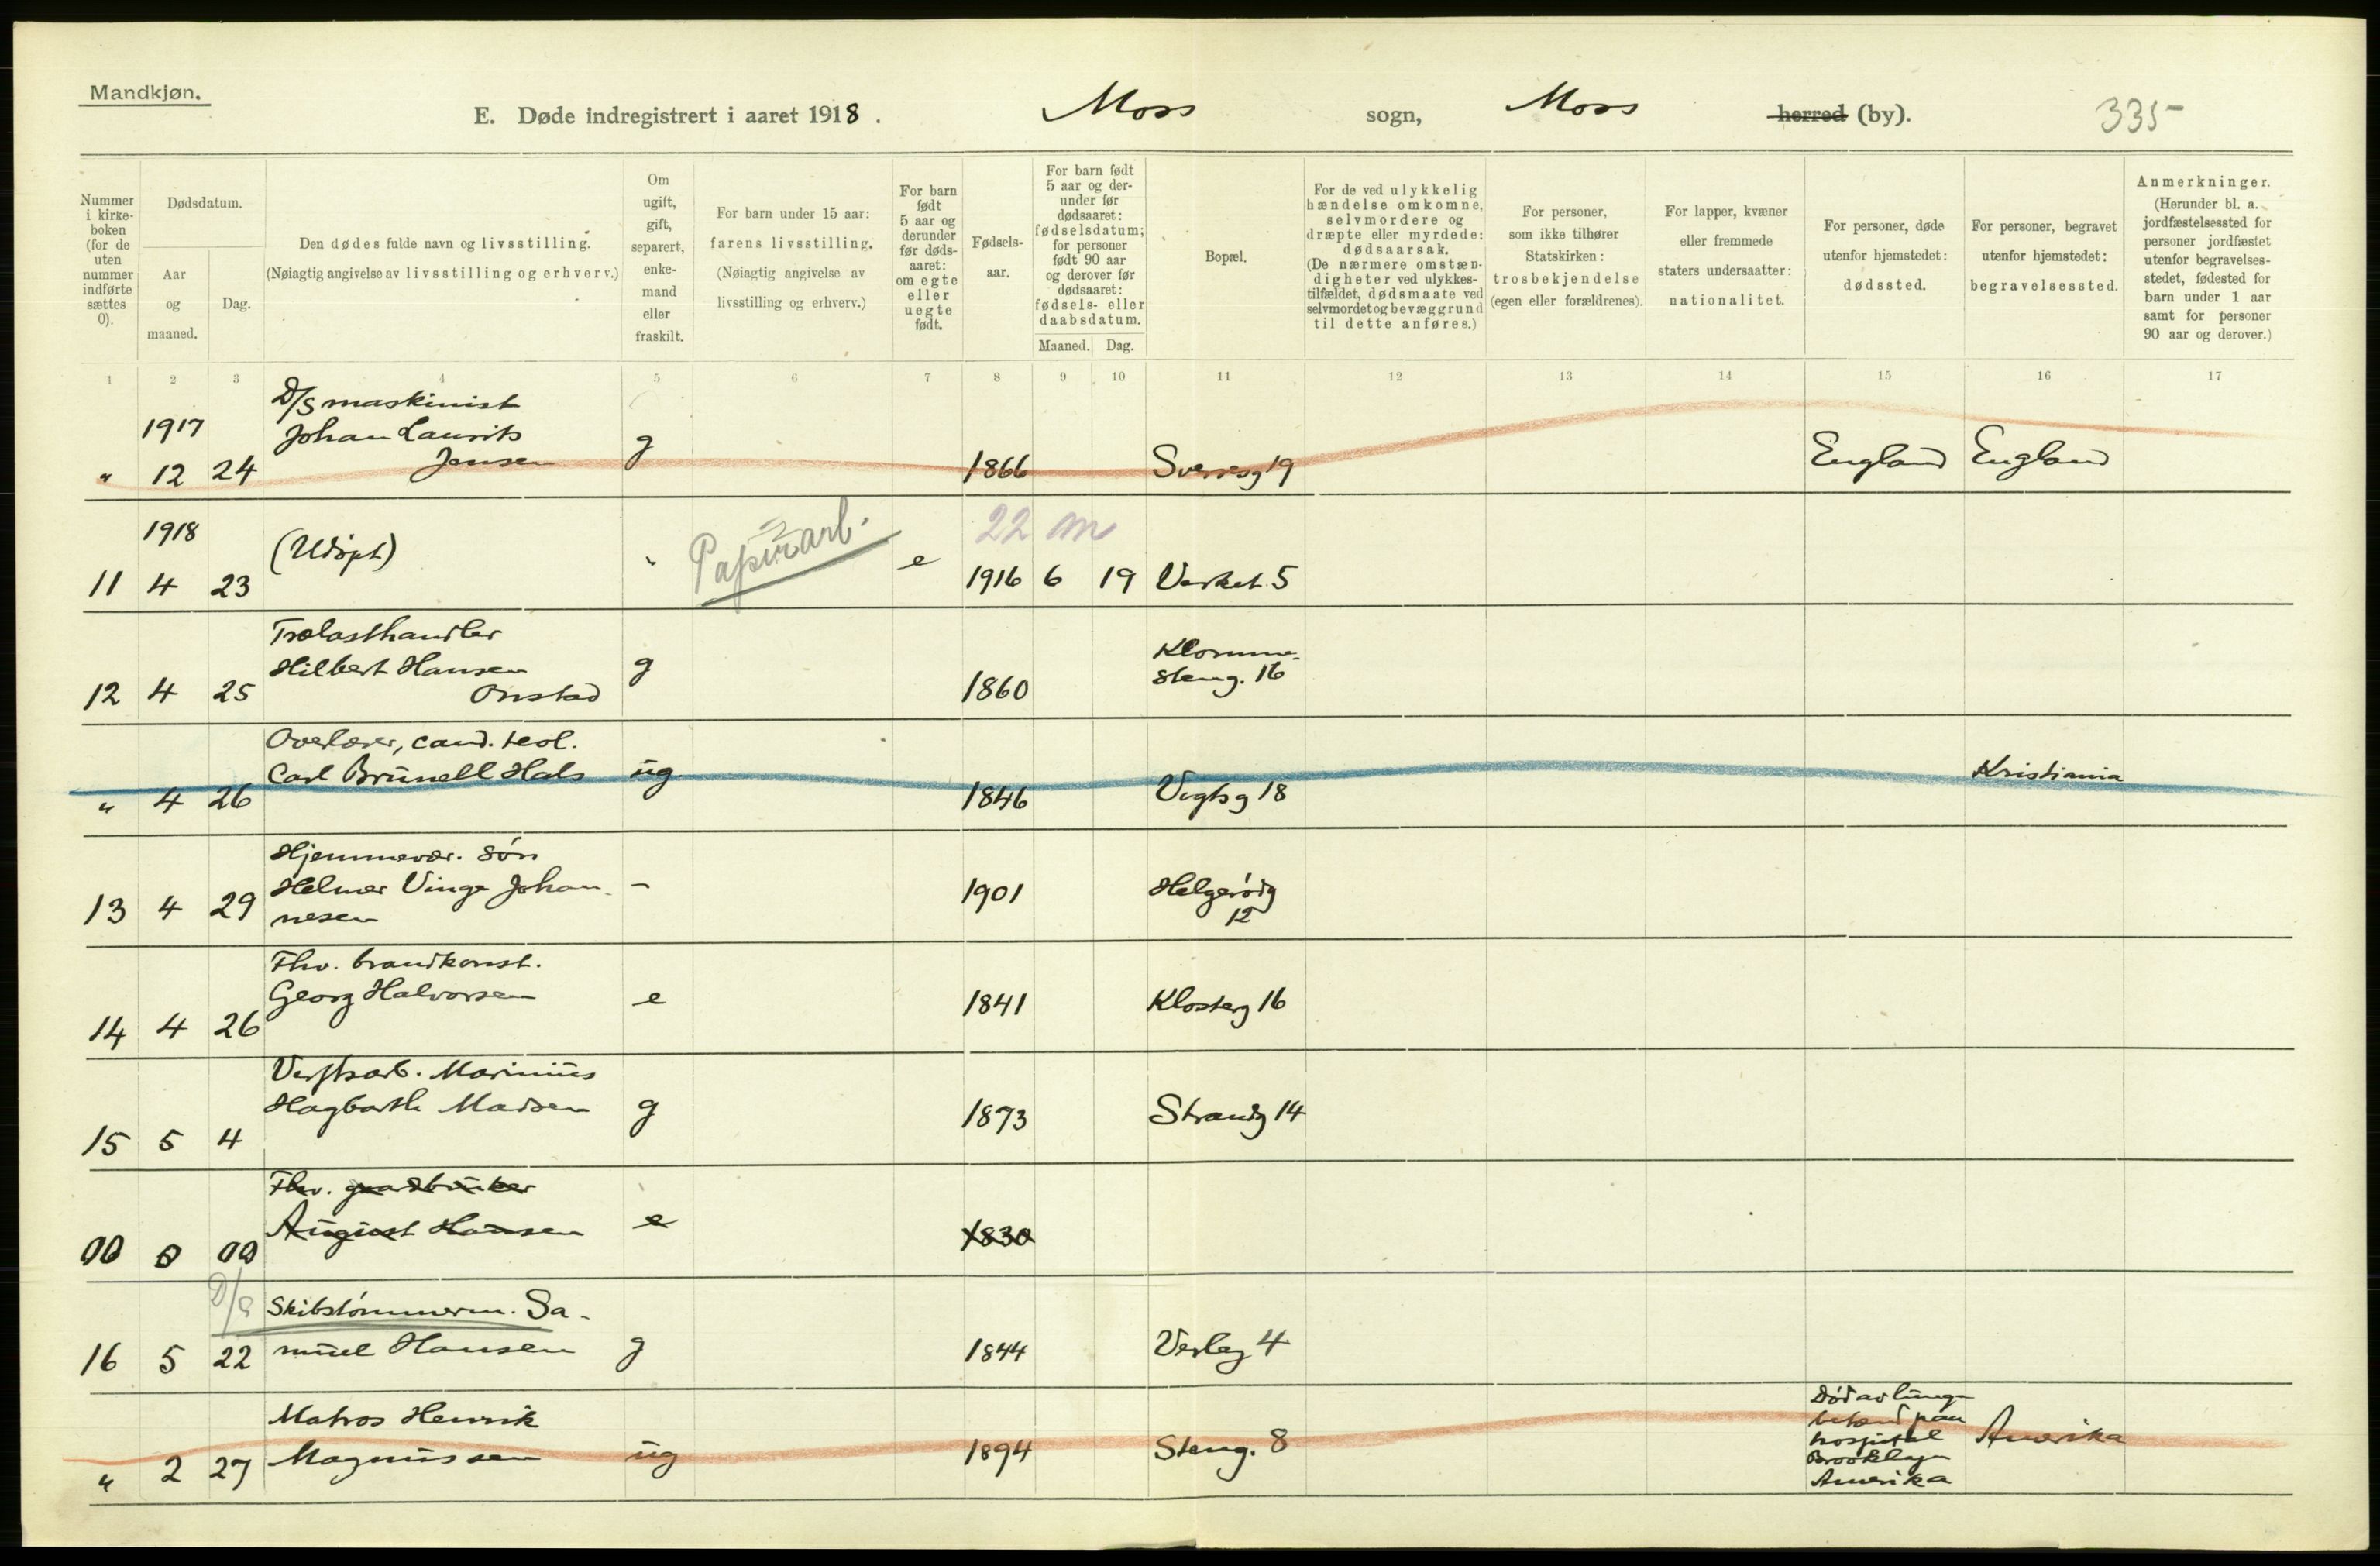 Mandkjøn.
E. Døde indregistrert i aaret 1918.
Moss sogn, Moss herred (by).
335
Nummer i kirke-boken (for de uten nummer indførte sættes 0).
Dødsdatum.
Aar og maaned.
Dag.
Den dødes fulde navn og livsstilling.
(Nøiagtig angivelse av livsstilling og erhverv.)
Om ugift, gift, separert, enke-mand eller fraskilt.
For barn under 15 aar: farens livsstilling.
(Nøiagtig angivelse av livsstilling og erhverv.)
For barn født 5 aar og derunder før døds-aaret: om egte eller uegte født.
Fødsels-aar.
For barn født 5 aar og der-under før dødsaaret: fødselsdatum; for personer født 90 aar og derover før dødsaaret: fødsels- eller daabsdatum.
Maaned. Dag.
Bopæl.
For de ved ulykkelig hændelse omkomne, selvmordere og dræpte eller myrdede: dødsaarsak.
(De nærmere omstæn-digheter ved ulykkes-tilfældet, dødsmaate ved selvmordet og bevæggrund til dette anføres.)
For personer, som ikke tilhører Statskirken: trosbekjendelse (egen eller forældrenes).
For lapper, kvæner eller fremmede staters undersaatter: nationalitet.
For personer, døde utenfor hjemstedet: dødssted.
For personer, begravet utenfor hjemstedet: begravelsessted.
Anmerkninger.
(Herunder bl. a. jordfæstelsessted for personer jordfæstet utenfor begravelses-stedet, fødested for barn under 1 aar samt for personer 90 aar og derover.)
1 2 3 4 5 6 7 8 9 10 11 12 13 14 15 16 17
D/S maskinist
1917 Johan Laurits
" 12 24 Jensen g 1866 Sverresg 19 England England
1918 22 m
(Udøpt) " Papirarb. e
11 4 23 1916 6 19 Verket 5
Trælasthandler
Hilbert Hansen g
12 4 25 Onstad 1860 steng. 16
Overlærer, cand. teol.
Carl Brunell Hals ug Kristiania
" 4 26 1846 Vogtsg 18
Hjemmevær. søn
Helmer Vinge Johan- - 1901 Helgerødg
13 4 29 nesen 12
Fhv. brandkonst.
Georg Halvorsen e 1841 Klosterg 16
14 4 26
Verftsarb. Marinius
Hagbarth Madsen g 1873 Strandg 14
15 5 4
Fhv. gaardbruker
August Hansen e 1830
00 0 00
D/S Skibstømmerm. Sa-
16 5 22 muel Hansen g 1844 Verleg 4
Matros Henrik
" 2 27 Magnussen ug 1894 Steng. 8 Amerika
Død av lunge
betænd paa
hospital
Brooklyn
Amerika